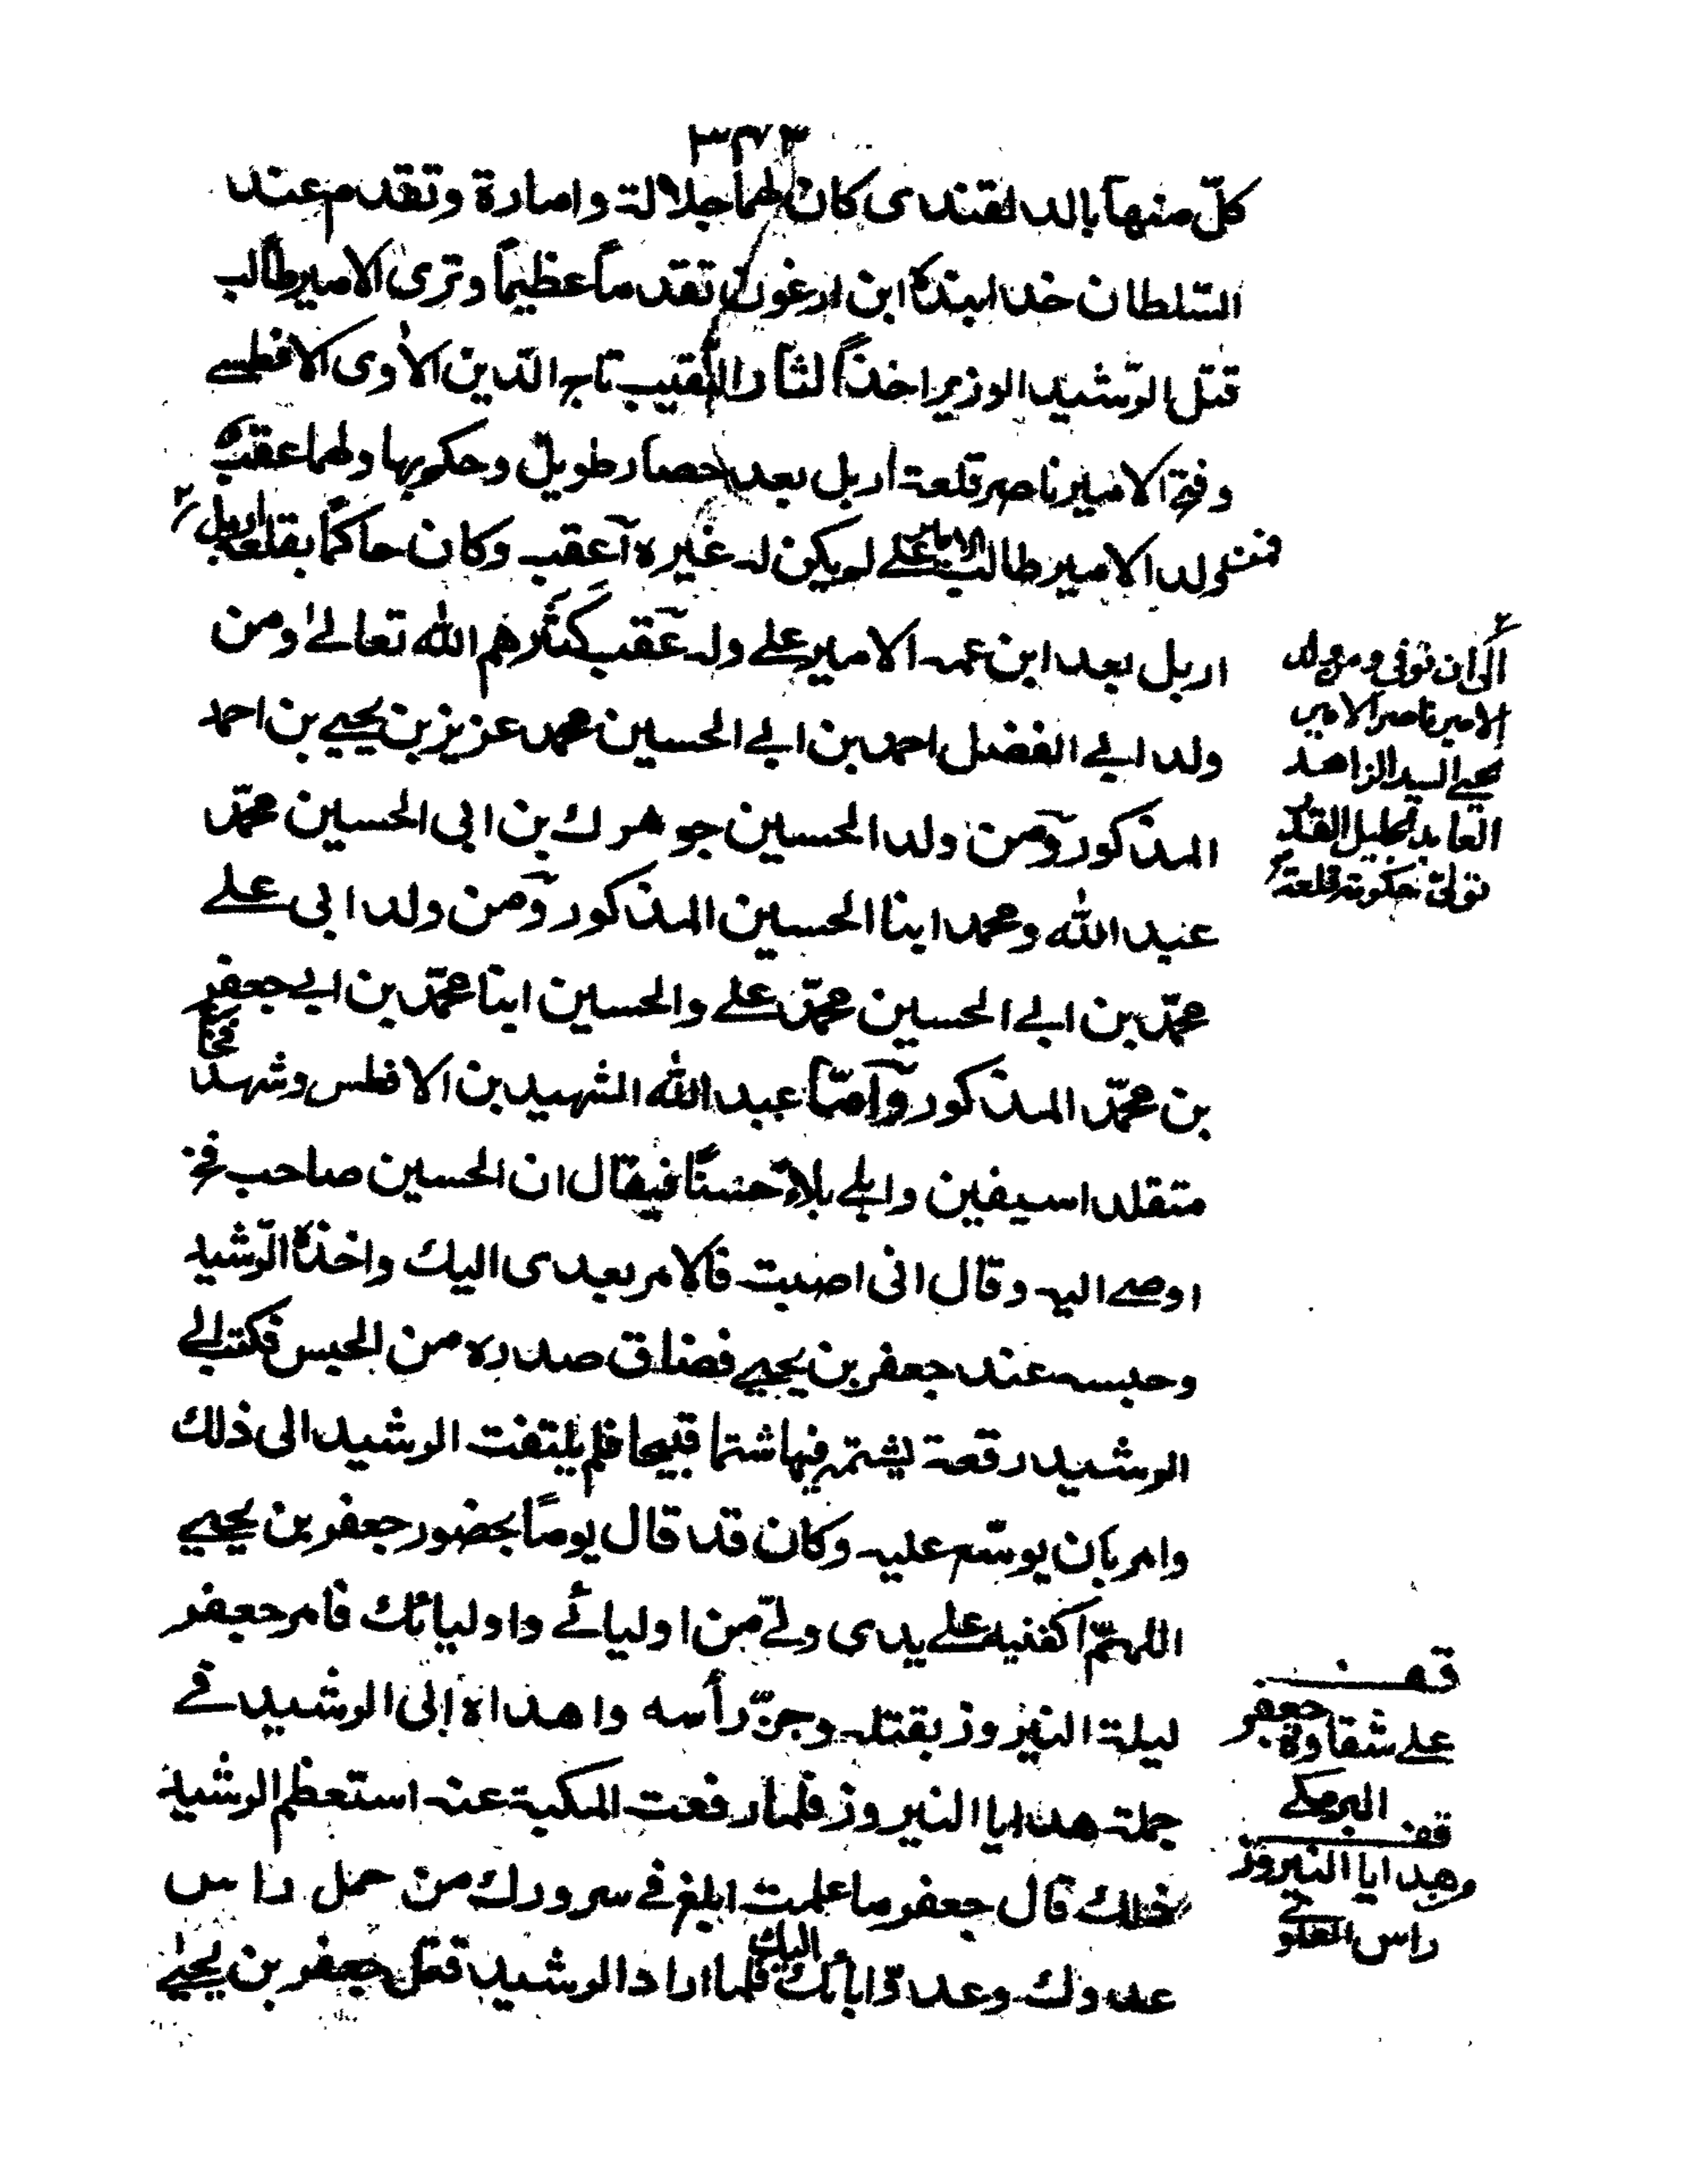 ٣٧٣
كلّ منهما بالدلقندى كان لهما جلالة وامارة وتقدم عند
السّلطان خدابنده ابن ارغون تقدماً عظيماً وترى الامير طالب
قتل الرّشيد الوزير اخذاً لثار النّقيب تاج الدّين الآوى الافطسى
وفتح الامير ناصر قلعة اربل بعد حصار طويل وحكم بها ولهما عقب
فمن ولد الامير طالب الامير على لم يكن له غيره آعقب وكان حاكماً بقلعة اربل
اربل بعد ابن عمه الامير على وله عقب كثرهم الله تعالى ومن
ولد ابى الفضل احمد بن ابى الحسين محمد عزيز بن يحيى بن احمد
المذكور ومن ولد الحسين جوهرك بن ابى الحسين محمّد
عبد الله ومحمد ابنا الحسين المذكور ومن ولد ابى على
محمّد بن ابى الحسين محمّد على والحسين ابنا محمّد بن ابى جعفر
بن محمّد المذكور وآمّا عبد الله الشهيد بن الافطس وشهد فخّا
متقلدا سيفين وابلى بلاءً حسناً فيقال ان الحسين صاحب فخ
اوصى اليه وقال انى اصبت فالامر بعدى اليك واخذه الرّشيد
وحبسه عند جعفر بن يحيى فضاق صدره من الحبس فكتب الى
الرشيد رقعة يشتمه فيها شتما قبيحا فلم يلتفت الرشيد الى ذلك
وامر بان يوسّع عليه وكان قد قال يوماً بحضور جعفر بن يحيى
اللهمّ اكفنيه على يدى ولىّ من اوليائى واوليائك فامر جعفر
ليلة النيروز بقتله وجزّ رأسه واهداه إلى الرشيد فى
جملة هدايا النيروز فلما رفعت المكبة عنه استعظم الرشيد
ذلك قال جعفر ما علمت ابلغ فى سرورك من حمل راس
عدوك وعدوّ ابائك اليك فلما اراد الرشيد قتل جعفر بن يحيى
الى ان توفى ومن ولد
الامير ناصر الامير
يحيى السيد الزاهد
العابد الجليل القدر
تولى حكومة قلعة
قف
على شقاوة جعفر
البرمكى
قف
وهدايا النيروز
راس العلوى